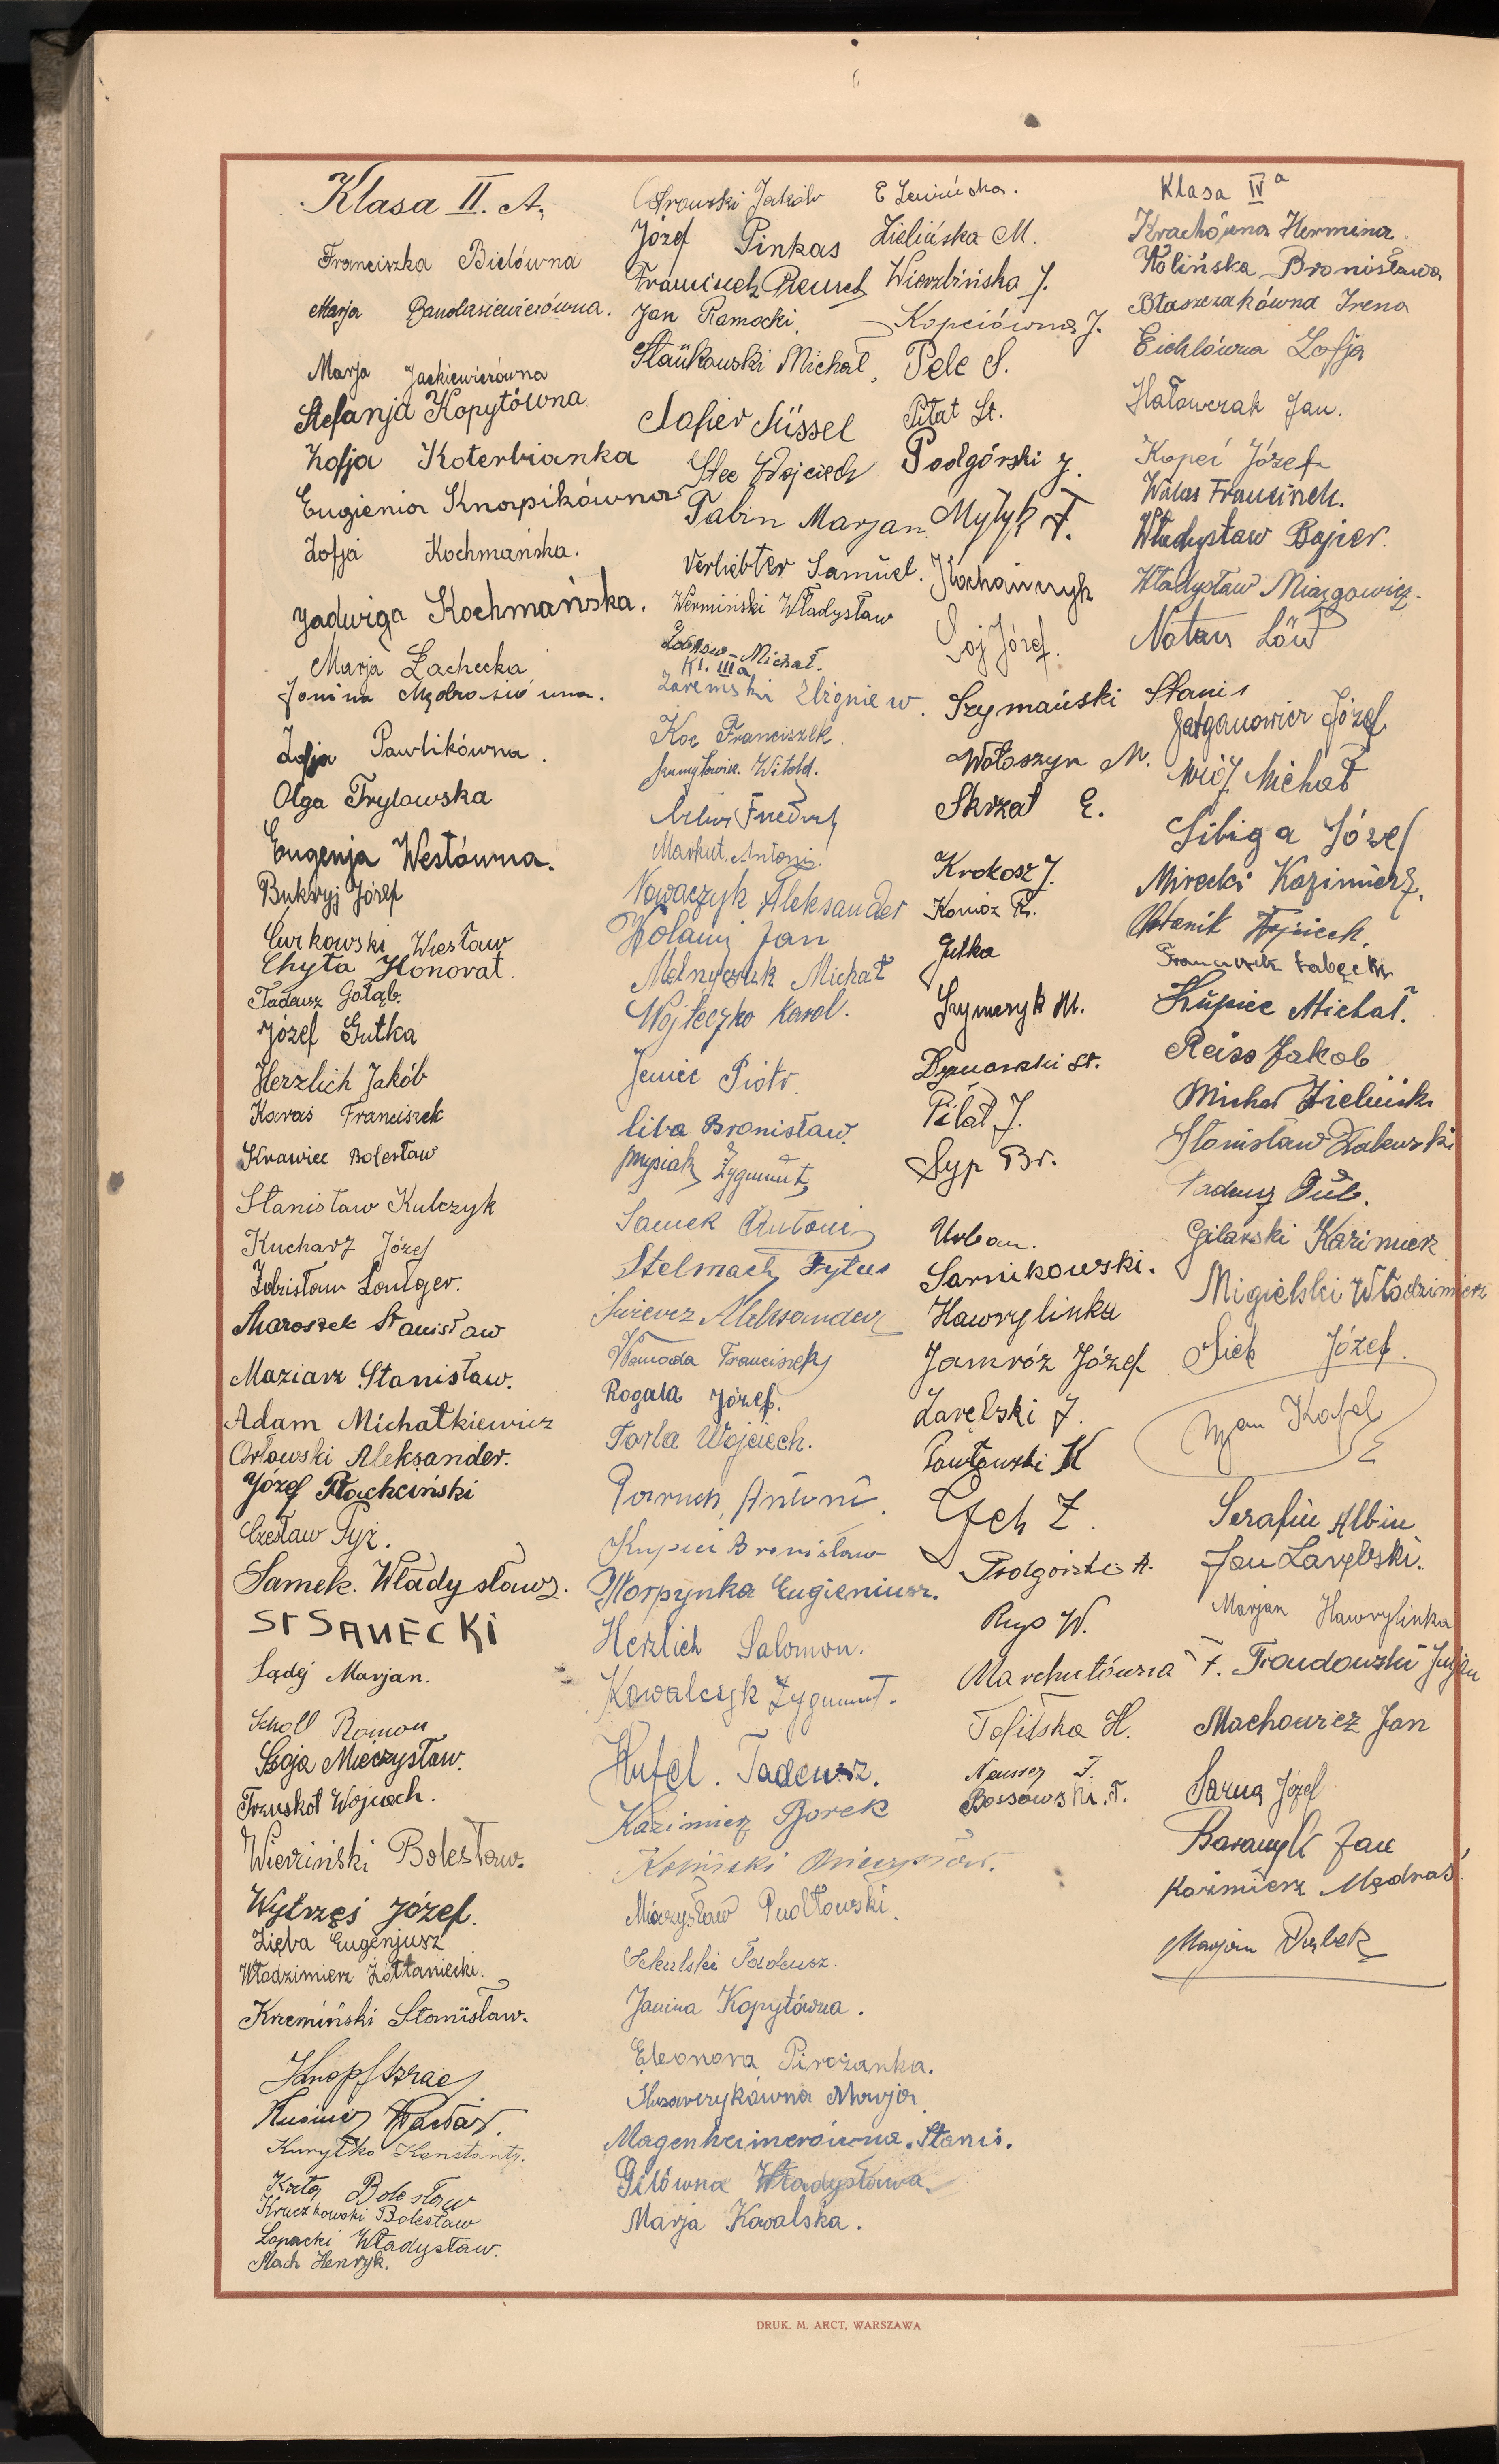 Klasa II. A.
Franciszka Bielówna
Marja Bandasiewiczówna.
Marja Jackiewiczówna
Stefanja Kopytówna
Zofja Koterbianka
Eugienia Knapikówna
Zofja Kochmańska.
Jadwiga Kochmańska.
Marja Zachecka
Janina Mędrosiówna.
Zofja Pawlikówna.
Olga Trylowska
Eugenja Westówna.
Bukryj Józef
Curkowski Wiesław
Chyta Honorat.
Tadeusz Gołąb.
Józef Gutka
Herzlich Jakób
Karaś Franciszek
Krawiec Bolesław
Stanisław Kulczyk
Kucharz Józef
Zdzisław Loutger.
Maroszek Stanisław
Maziarz Stanisław.
Adam Michałkiewicz
Orłowski Aleksander.
Józef Płachciński
Czesław Pyż.
Samek Władysław.
St SANECKI
Sądej Marjan.
Scholl Roman
Szoja Mieczysław.
Truskot Wojciech.
Wieziński Bolesław.
Wytrzęś Józef.
Zięba Eugenjusz
Włodzimierz Żółtaniecki.
Krzemiński Stanisław.
Knopf Izrael
Kuryłko Konstanty.
Kata Bolesław
Kruczkowski Bolesław
Łopacki Władysław.
Mach Henryk.
Ostrowski Jakób
Józef Pinkas
Franciszek
Jan Ramocki.
Stańkowski Michał,
Safier Süssel
Stec Wojciech
Tabin Marjan.
Verliebter Samuel.
Wermiński Władysław
Michał.
Kl. IIIa
Zaremski Zbigniew.
Koc Franciszek.
Szumyłowicz. Witold.
Artur Friedrich
Markut Antoni.
Nowaczyk Aleksander
Wolanij Jan
Melnyczuk Michał
Wojteczko Karol.
Jeniec Piotr
Liba Bronisław.
Mysiak Zygmunt,
Samek Antoni
Stelmach Tytus
Aleksander
Wanada Franciszek
Rogala Józef.
Tarła Wojciech.
Paruch, Antoni.
Kupiec Bronisław
Skorpynka Eugieniusz.
Herzlich Salomon.
Kowalczyk Zygmunt.
Hufel. Tadeusz.
Kazimierz Borek
Koniński Mieczysław.
Mieczysław Pudłowski.
Sekulski Tadeusz.
Janina Kopytówna.
Eleonora Pirożanka.
Ślusarczykówna Marja
Magenheimerówna. Stanis.
Gilówna Władysława.
Marja Kowalska.
E Lewińska.
Zielińska M.
Wierzbińska J.
Kopciówna J.
Pele S.
Piłat St.
Podgórski J.
Mytyk F.
Kochańczyk
Soj Józef.
Szymański Stanis
Wołoszyn M.
Skrzat E.
Krokosz J.
Konióz R.
Gutka
Szymczyk M.
Dymarski St.
Piłat J.
Syp Br.
Urban.
Sarnikowski.
Hawrylinka
Jamróz Józef
Zarębski J.
Pawłowski K
Czech Z.
Podgórski A.
Ryś W.
Marchutówna F.
Tofilska H.
Neusser F.
Bossowski. T.
Klasa IVa
Krachówna Hermina.
Wolińska Bronisława
Błaszczakówna Irena
Eichlówna Zofja
Hałowczak Jan.
Kopeć Józef
Walas Franciszek.
Władysław Bajser.
Władysław Miazgowicz.
Natan Löw
Gałganowicz Józef.
Wójc Michał
Sibiga Józef
Mirecki Kazimierz.
Wojciech.
Franciszek Zabęcki
Kupiec Michał.
Reiss Jakob
Michał Zieliński
Stanisław Zalewski
Tadeusz Dub.
Gilarski Kazimierz
Migielski Włodzimierz
Siek Józef.
Jan Kafel
Serafin Albin
Jan Zarębski.
Marjan Hawrylinka
Trondowski Juljan
Machowicz Jan
Sarna Józef
Baranyk Jan
Kazimierz Mędraś.
Marjan Dąbek
DRUK. M. ARCT, WARSZAWA